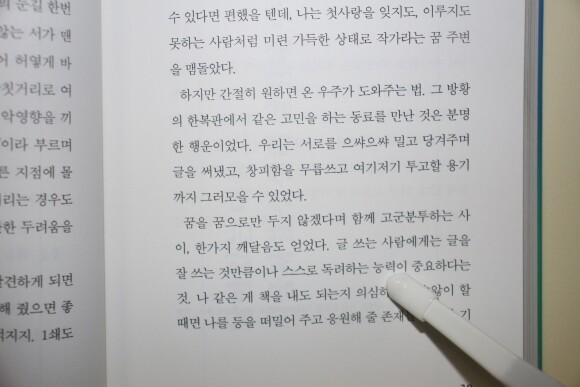 의 눈길 한번
않는 서가 맨
어 허옇게 바
짓거리로 여
악영향을 끼
이라 부르며
른 지점에 몰
리는 경우도
한 두려움을
발견하게 되면
해 줬으면 좋
적지지. 1쇄도
수 있다면 편했을 텐데, 나는 첫사랑을 잊지도, 이루지도
못하는 사람처럼 미련 가득한 상태로 작가라는 꿈 주변
을 맴돌았다.
하지만 간절히 원하면 온 우주가 도와주는 법. 그 방황
의 한복판에서 같은 고민을 하는 동료를 만난 것은 분명
한 행운이었다. 우리는 서로를 으쌰으쌰 밀고 당겨주며
글을 써냈고, 창피함을 무릅쓰고 여기저기 투고할 용기
까지 그러모을 수 있었다.
꿈을 꿈으로만 두지 않겠다며 함께 고군분투하는 사
이, 한가지 깨달음도 얻었다. 글 쓰는 사람에게는 글을
잘 쓰는 것만큼이나 스스로 독려하는 능력이 중요하다는
것. 나 같은 게 책을 내도 되는지 의심하 않이 할
때면 나를 등을 떠밀어 주고 응원해 줄 존재 기